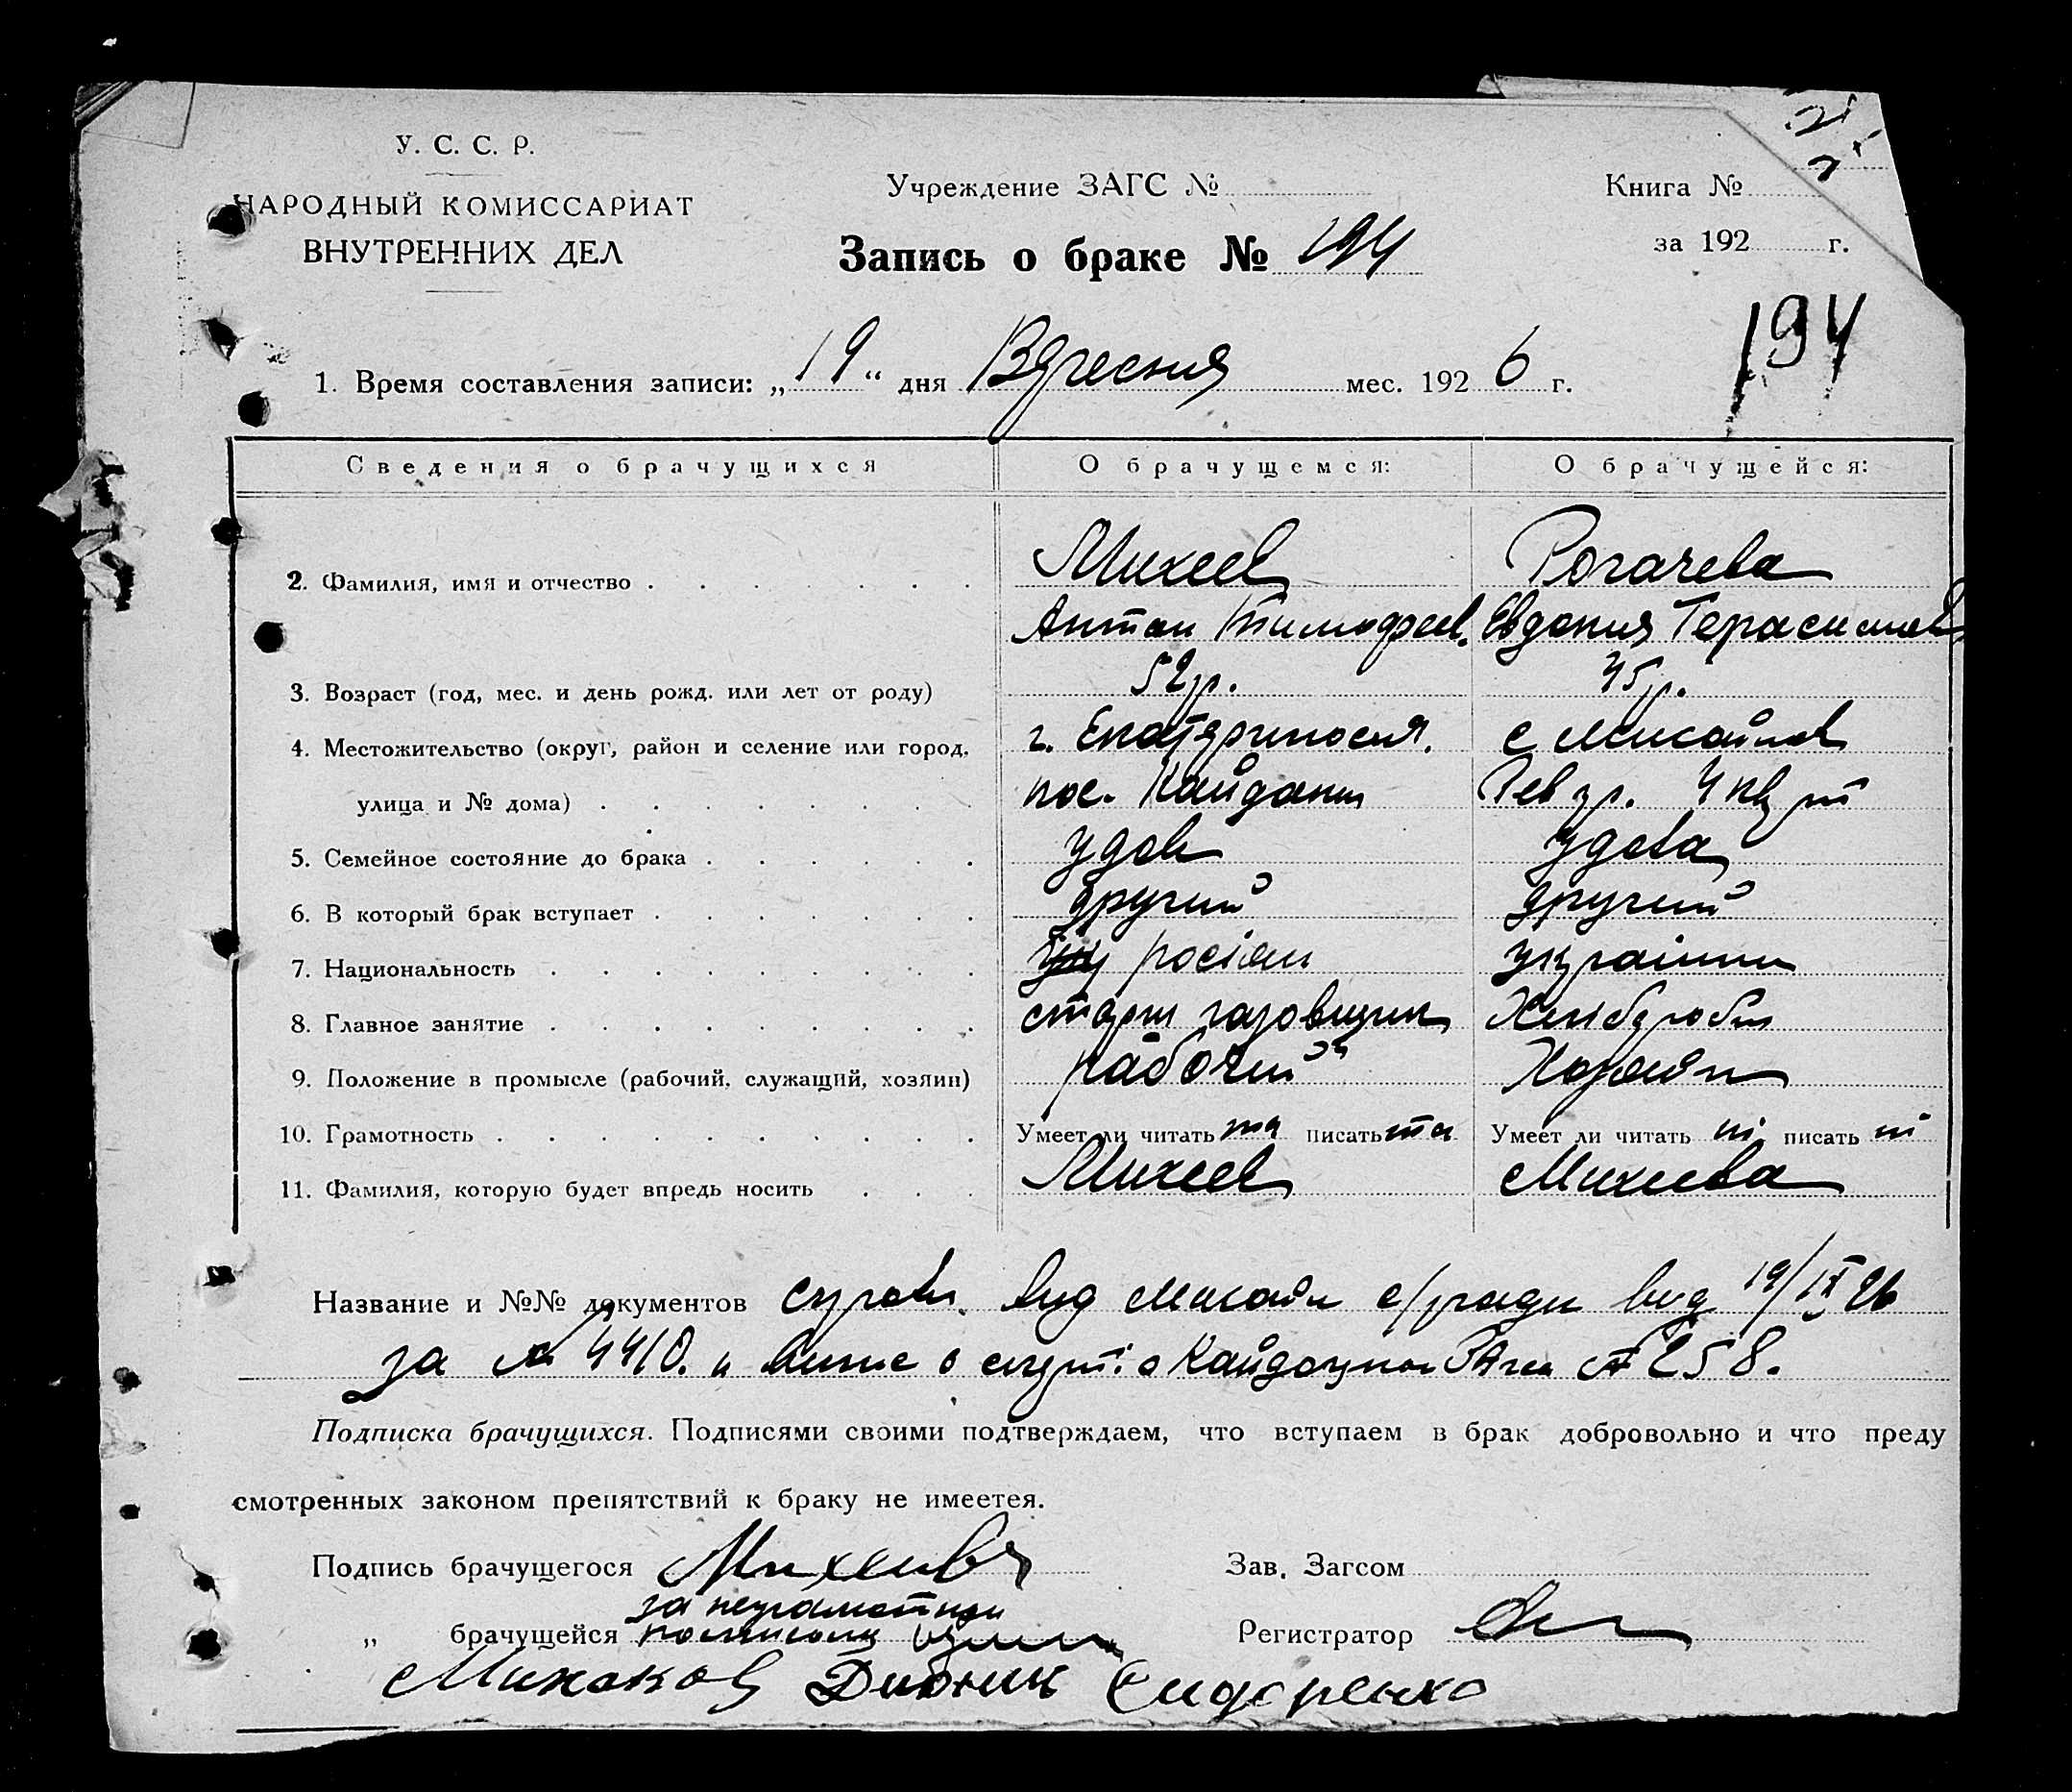 У. С. С. Р.
НАРОДНЫЙ КОМИССАРИАТ
ВНУТРЕННИХ ДЕЛ
Учреждение ЗАГС №
Книга №
за 192 г.
Запись о браке № 194
194
1. Время составления записи: „19“ дня Вересня мес. 1926 г.
Сведения о брачущихся О брачущемся: О брачущейся:
2. Фамилия, имя и отчество Михеев Рогачева
Антон Тимофеев. Евдокия Герасимов
3. Возраст (год, мес. и день рожд. или лет от роду) 52 р. 45 р.
4. Местожительство (округ, район и селение или город, г. с Мисайлов
улица и № дома) пос. Кайдаки
5. Семейное состояние до брака удов удова
6. В который брак вступает другий другий
7. Национальность росіян украінки
8. Главное занятие Хліборобш
9. Положение в промысле (рабочий, служащий, хозяин) рабочий Хозяін
10. Грамотность Умеет ли читать та писать та Умеет ли читать ні писать ні
11. Фамилия, которую будет впредь носить Михеев Михеева
Название и №№ документов від с/ради від 19/IX 26
за № 4410. и о смерті № 258.
Подписка брачущихся. Подписями своими подтверждаем, что вступаем в брак добровольно и что преду
смотренных законом препятствий к браку не имеетея.
Подпись брачущегося Михеивъ
Зав. Загсом
за неграмотной
„ брачущейся
Регистратор
Сидоренко